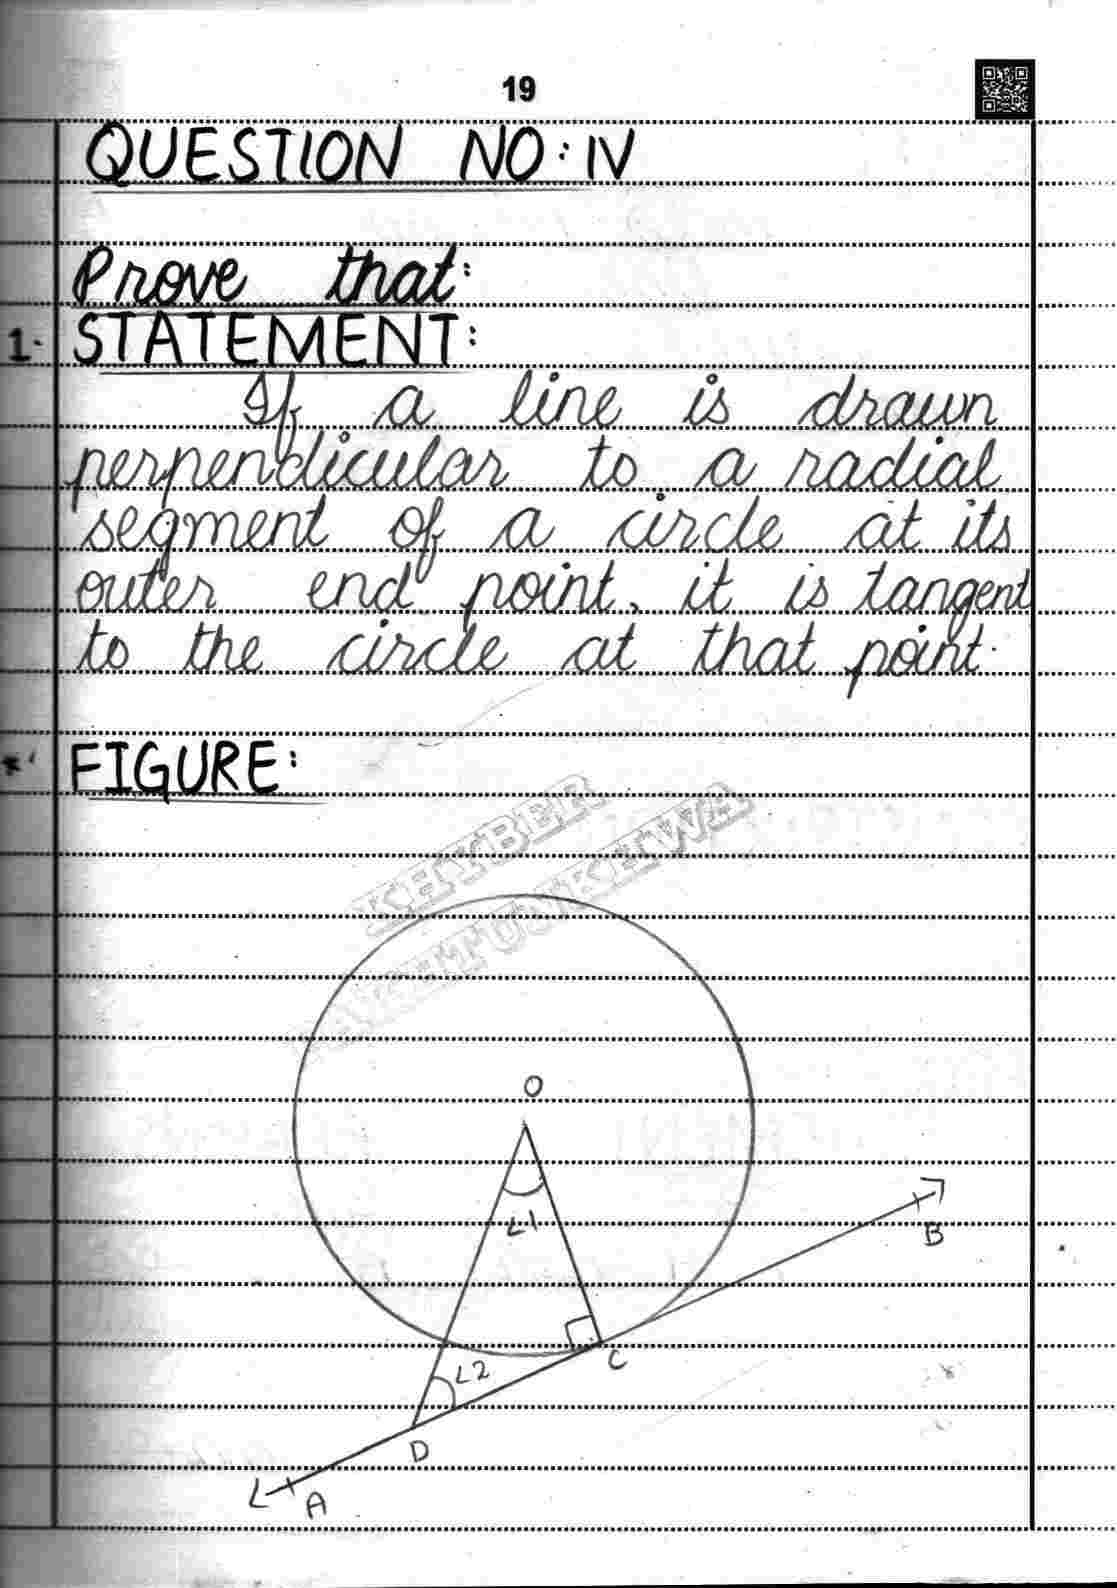 19
QUESTION NO: IV
Prove that:
1. STATEMENT:
If a line is drawn
perpendicular to a radial
segment of a circle at its
outer end point, it is tangent
to the circle at that point.
FIGURE:
KHYBER
PAKHTUNKHWA
O
∠1
B
C
∠2
D
A